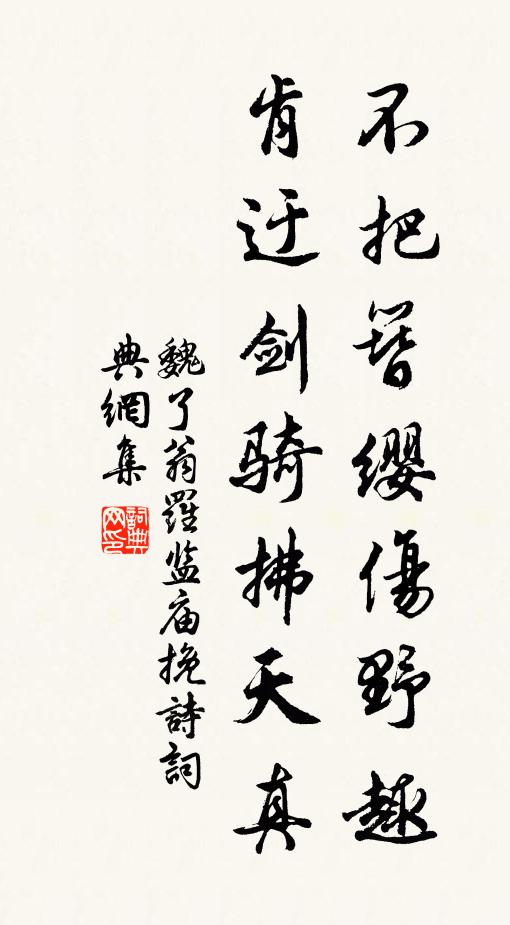 不把簪缨傷野趣
肯迂剑骑拂天真
魏了翁羅监庙挽詩詞
典網集
詞典
网印